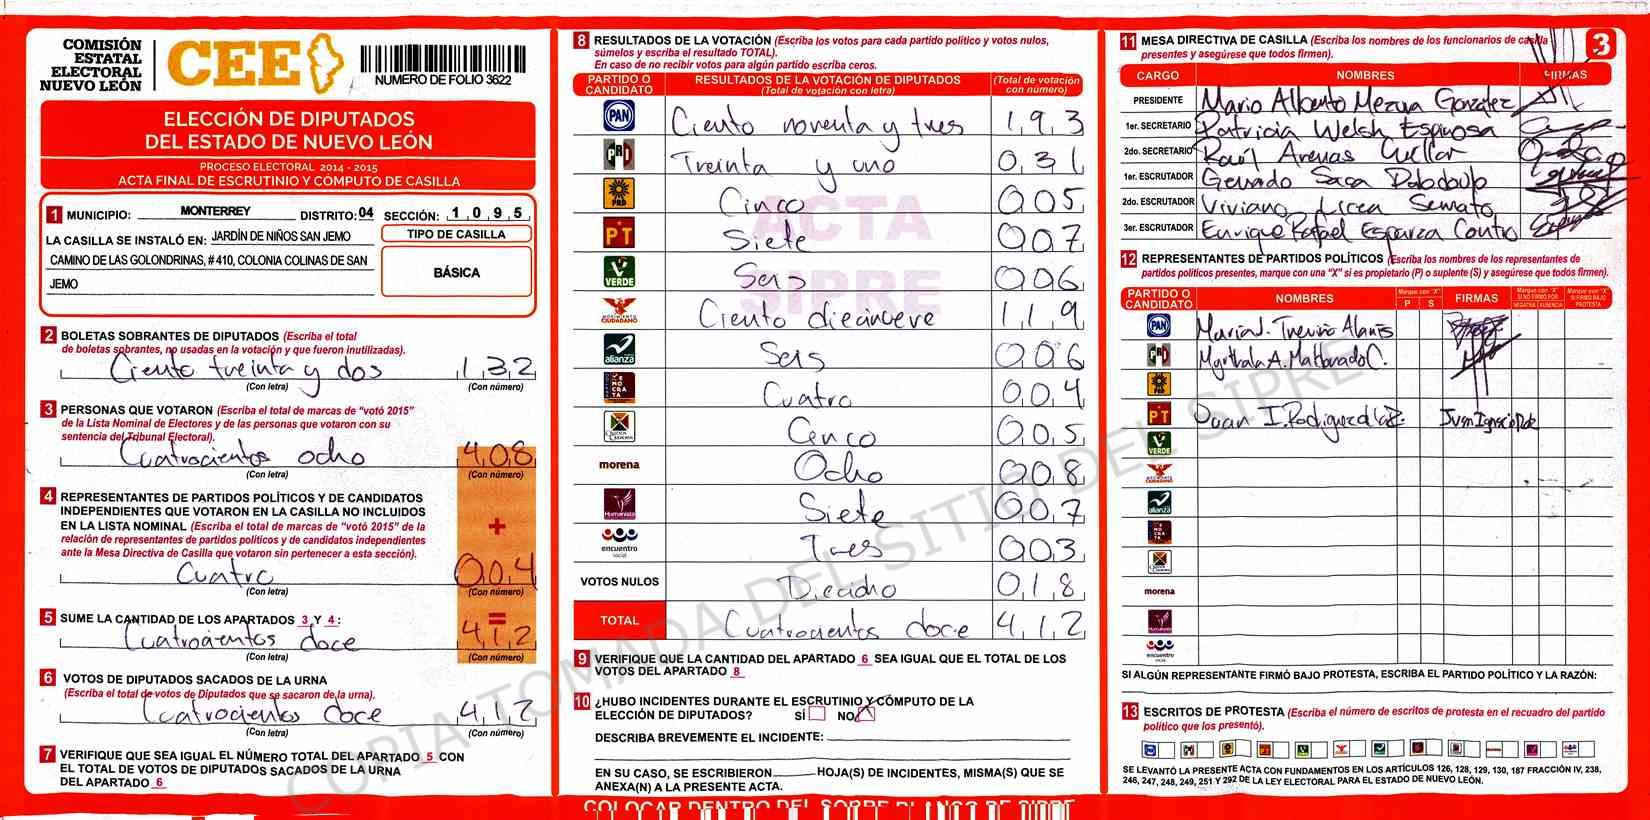 COMISIÓN
ESTATAL
ELECTORAL
NUEVO LEÓN
CEE
NUMERO DE FOLIO 3622
ELECCIÓN DE DIPUTADOS
DEL ESTADO DE NUEVO LEÓN
PROCESO ELECTORAL 2014 - 2015
ACTA FINAL DE ESCRUTINIO Y CÓMPUTO DE CASILLA
1 MUNICIPIO: MONTERREY DISTRITO: 04 SECCIÓN: 1 0 9 5
LA CASILLA SE INSTALÓ EN: JARDÍN DE NIÑOS SAN JEMO
CAMINO DE LAS GOLONDRINAS, # 410, COLONIA COLINAS DE SAN
JEMO
TIPO DE CASILLA
BÁSICA
2 BOLETAS SOBRANTES DE DIPUTADOS (Escriba el total
de boletas sobrantes, no usadas en la votación y que fueron inutilizadas).
Ciento treinta y dos 1 3 2
(Con letra) (Con número)
3 PERSONAS QUE VOTARON (Escriba el total de marcas de "votó 2015"
de la Lista Nominal de Electores y de las personas que votaron con su
sentencia del Tribunal Electoral).
Cuatrocientos ocho 4 0 8
(Con letra) (Con número)
4 REPRESENTANTES DE PARTIDOS POLÍTICOS Y DE CANDIDATOS
INDEPENDIENTES QUE VOTARON EN LA CASILLA NO INCLUIDOS
EN LA LISTA NOMINAL (Escriba el total de marcas de "votó 2015" de la
relación de representantes de partidos políticos y de candidatos independientes
ante la Mesa Directiva de Casilla que votaron sin pertenecer a esta sección).
+
Cuatro 0 0 4
(Con letra) (Con número)
5 SUME LA CANTIDAD DE LOS APARTADOS 3 Y 4: =
Cuatrocientos doce 4 1 2
(Con letra) (Con número)
6 VOTOS DE DIPUTADOS SACADOS DE LA URNA
(Escriba el total de votos de Diputados que se sacaron de la urna).
Cuatrocientos doce 4 1 2
(Con letra) (Con número)
7 VERIFIQUE QUE SEA IGUAL EL NÚMERO TOTAL DEL APARTADO 5 CON
EL TOTAL DE VOTOS DE DIPUTADOS SACADOS DE LA URNA
DEL APARTADO 6
8 RESULTADOS DE LA VOTACIÓN (Escriba los votos para cada partido político y votos nulos,
súmelos y escriba el resultado TOTAL).
En caso de no recibir votos para algún partido escriba ceros.
PARTIDO O CANDIDATO RESULTADOS DE LA VOTACIÓN DE DIPUTADOS (Total de votación con letra) (Total de votación con número)
PAN Ciento noventa y tres 1 9 3
PRI Treinta y uno 0 3 1
PRD Cinco 0 0 5
PT Siete 0 0 7
VERDE Seis 0 0 6
MOVIMIENTO CIUDADANO Ciento diecinueve 1 1 9
alianza Seis 0 0 6
DEMOCRATA Cuatro 0 0 4
Cinco 0 0 5
morena Ocho 0 0 8
Humanista Siete 0 0 7
encuentro social Tres 0 0 3
VOTOS NULOS Diecioho 0 1 8
TOTAL Cuatrocientos doce 4 1 2
ACTA
SIPRE
9 VERIFIQUE QUE LA CANTIDAD DEL APARTADO 6 SEA IGUAL QUE EL TOTAL DE LOS
VOTOS DEL APARTADO 8
10 ¿HUBO INCIDENTES DURANTE EL ESCRUTINIO Y CÓMPUTO DE LA
ELECCIÓN DE DIPUTADOS? SÍ NO X
DESCRIBA BREVEMENTE EL INCIDENTE:
EN SU CASO, SE ESCRIBIERON HOJA(S) DE INCIDENTES, MISMA(S) QUE SE
ANEXA(N) A LA PRESENTE ACTA.
COPIA TOMADA DEL SITIO DEL SIPRE
11 MESA DIRECTIVA DE CASILLA (Escriba los nombres de los funcionarios de casilla
presentes y asegúrese que todos firmen).
3
CARGO NOMBRES FIRMAS
PRESIDENTE Mario Alberto Mezura González
1er. SECRETARIO Patricia Welsh Espinosa
2do. SECRETARIO Raúl Arenas Cuellar
1er. ESCRUTADOR Gerardo Saca Dabdoub
2do. ESCRUTADOR Viviano Licea Semato
3er. ESCRUTADOR Enrique Rafael Esparza Cantu
12 REPRESENTANTES DE PARTIDOS POLÍTICOS (Escriba los nombres de los representantes de
partidos políticos presentes, marque con una "X" si es propietario (P) o suplente (S) y asegúrese que todos firmen).
PARTIDO O CANDIDATO NOMBRES Marque con "X" P S FIRMAS Marque con "X" SI NO FIRMÓ POR NEGATIVA AUSENCIA Marque con "X" SI FIRMÓ BAJO PROTESTA
PAN Maria J. Treviño Alanis
PRI Myrthala A. Maldonado C.
PRD
PT Juan I. Rodriguez
VERDE
MOVIMIENTO CIUDADANO
alianza
DEMOCRATA
morena
Humanista
encuentro social
SI ALGÚN REPRESENTANTE FIRMÓ BAJO PROTESTA, ESCRIBA EL PARTIDO POLÍTICO Y LA RAZÓN:
13 ESCRITOS DE PROTESTA (Escriba el número de escritos de protesta en el recuadro del partido
político que los presentó).
SE LEVANTÓ LA PRESENTE ACTA CON FUNDAMENTOS EN LOS ARTÍCULOS 126, 128, 129, 130, 187 FRACCIÓN IV, 238,
246, 247, 248, 249, 251 Y 292 DE LA LEY ELECTORAL PARA EL ESTADO DE NUEVO LEÓN.